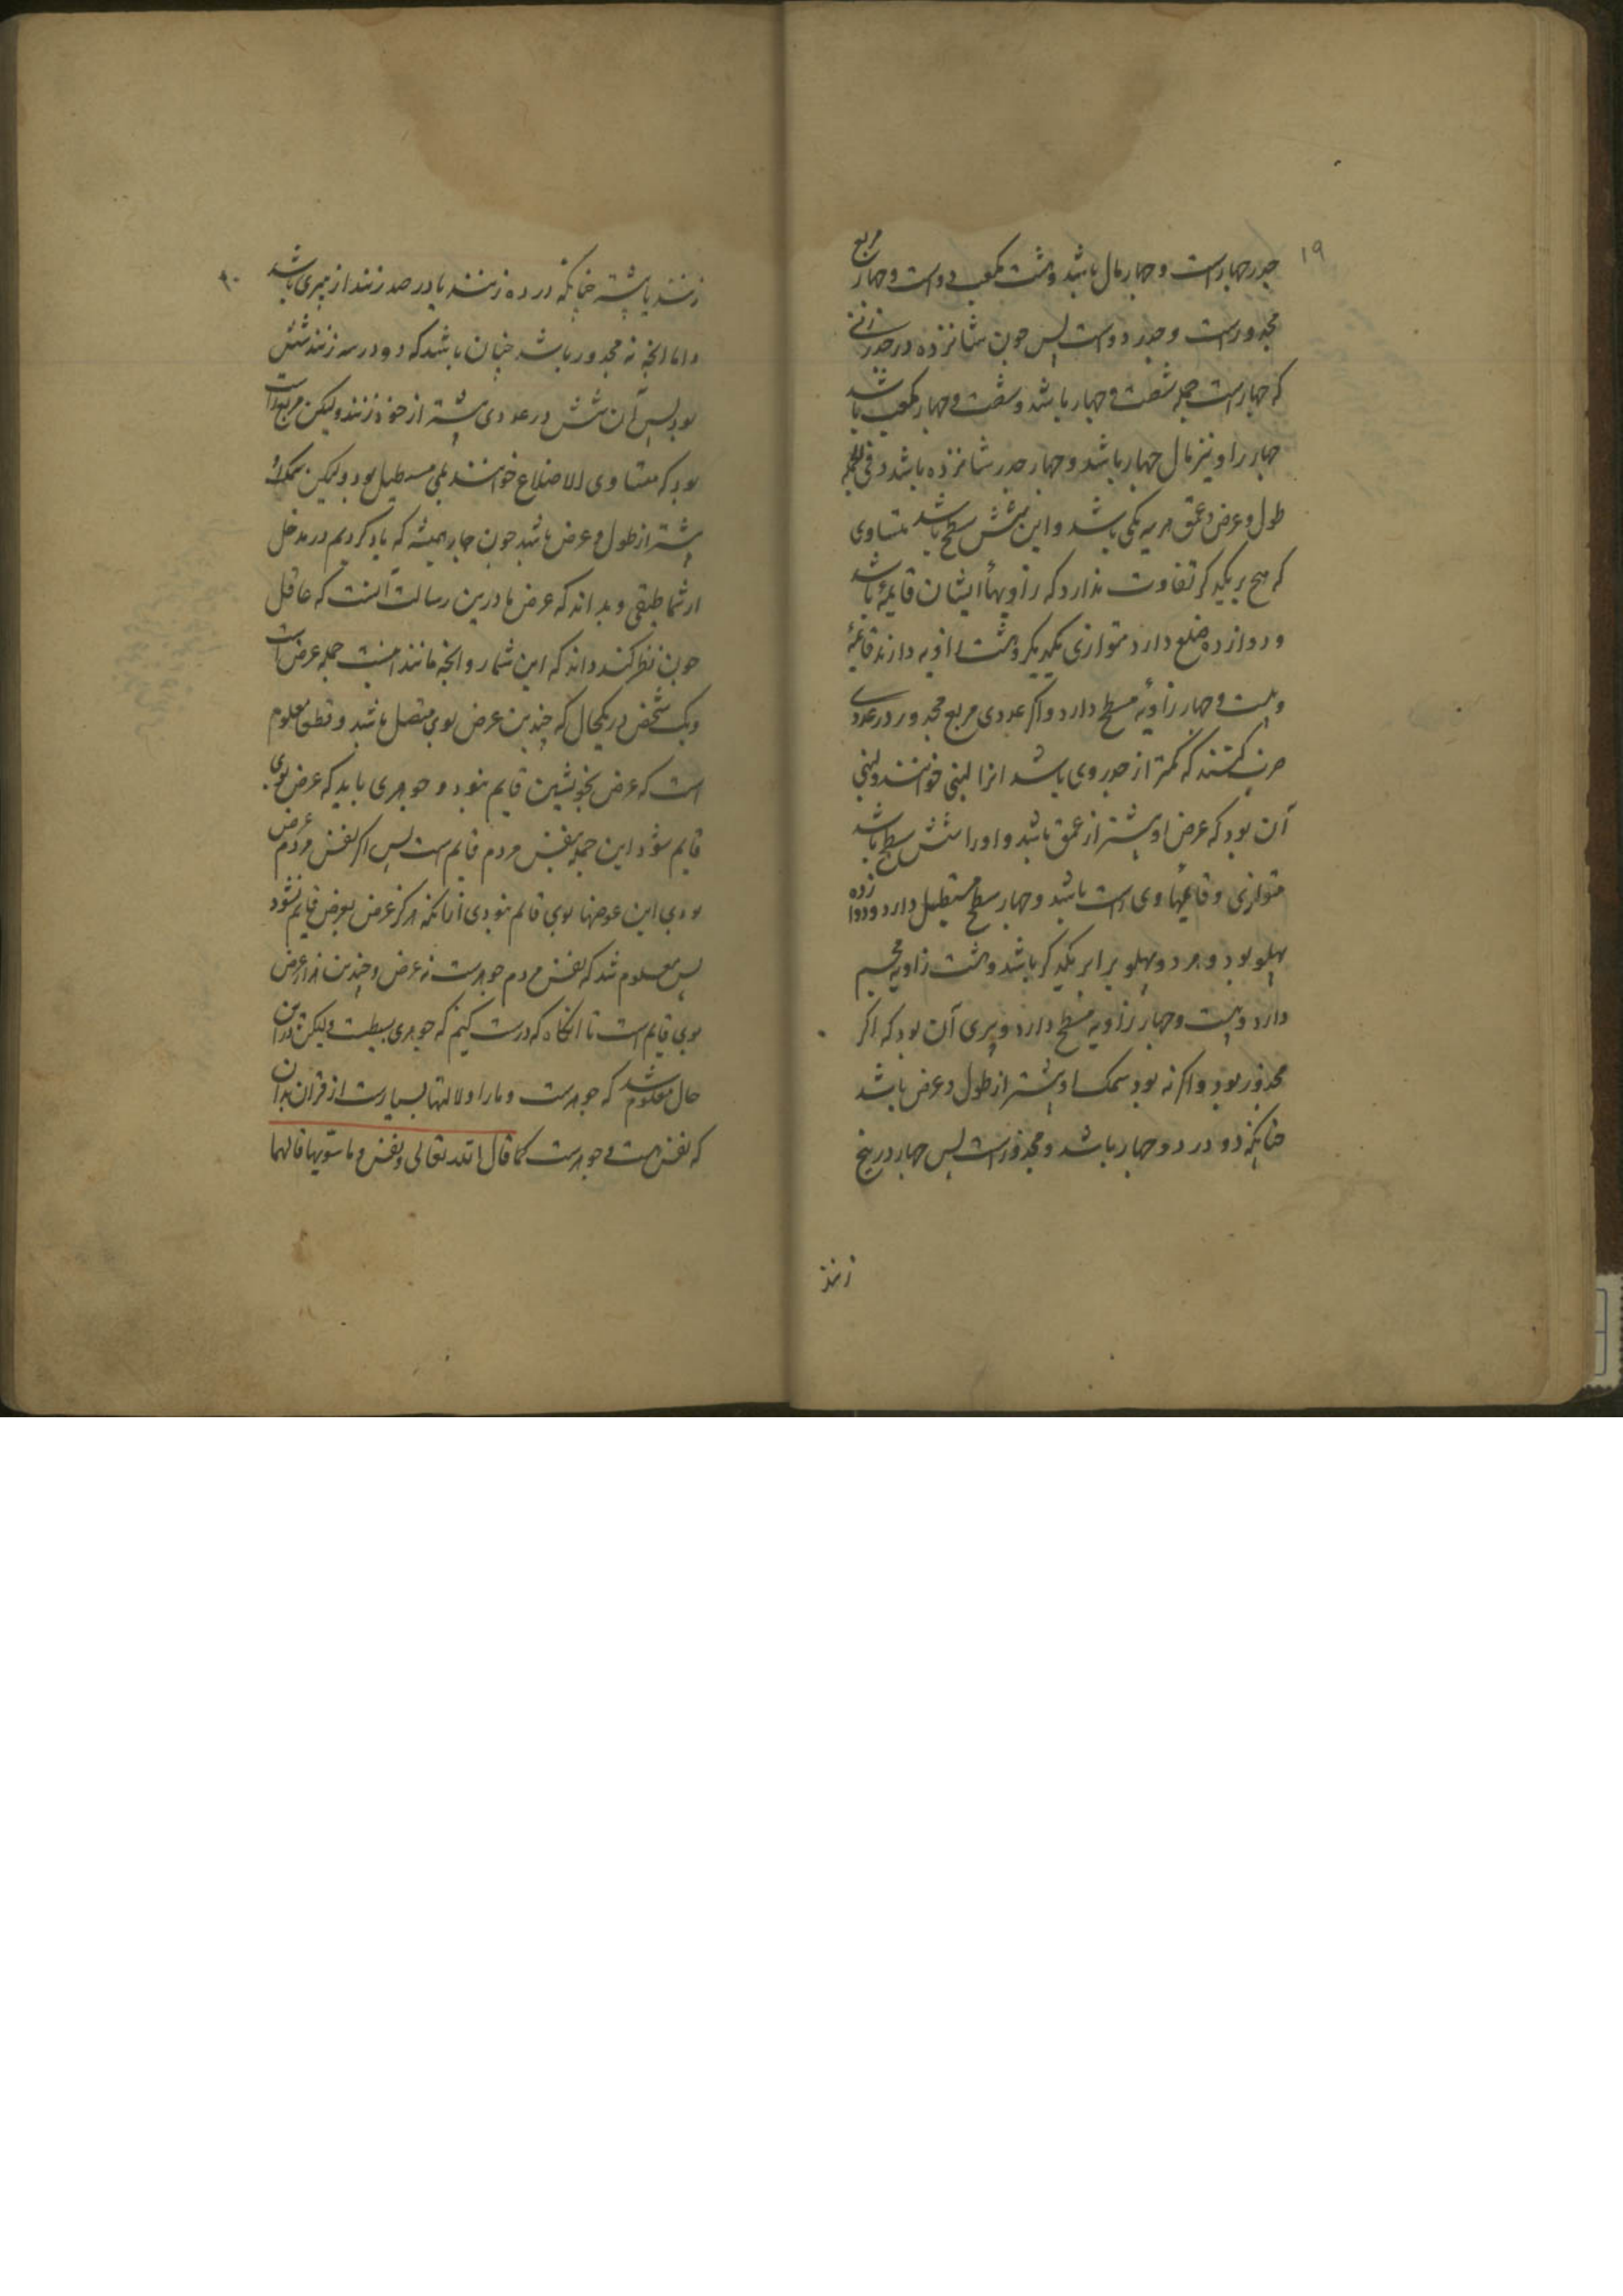 ۱۹
جدر چهارست و چهار مال باشد و هشت مکعب دوست و چهار مربع
مجدورست و جدر دوست پس جون شانزده در جدر زنی
که چهارست جمله شصت و چهار باشد و شصت و چهار مکعب باشد
چهار را و نیز مال چهار باشد و چهار جدر شانزده باشد و فی الجمله
طول و عرض و عمق هر سه یکی باشد و این شش سطح باشد متساوی
که هیچ بر یکدیگر تفاوت ندارد که زاویهاء ایشان قایمه باشد
و دوازده ضلع دارد متوازی یکدیگر و هشت زاویه دارند قایمه
و بیست و چهار زاویهٔ مسطح دارد و اگر عددی مربع مجدور در عددی
ضرب کنند که کمتر از جدر وی باشد انرا لبنی خوانند و لبنی
آن بود که عرض او بیشتر از عمق باشد و او را شش سطح باشد
متوازی و قایمهاء وی راست باشد و چهار سطح مستطیل دارد و دوازده
پهلو بود و هر دو پهلو برابر یکدیگر باشد و هشت زاویه مجسم
دارد و بیست و چهار زاویه مسطح دارد و بیری آن بود که اگر
مجذور بود و اگر نه بود سمک او بیشتر از طول و عرض باشد
چنانکه دو در دو چهار باشد و مجذورست پس چهار در پنج
زنند
۲۰
زنند یا بیشتر چنانکه در ده زنند یا در صد زنند از بیری باشد
و اما انچه نه مجدور باشد چنان باشد که دو در سه زنند شش
بود پس آن شش در عددی بیشتر از خود زنند و لیکن مربع راست
بود که متساوی الاضلاع خوانند بلی مستطیل بود و لیکن سمک او
بیشتر از طول و عرض باشد جون چاریمیشه که یاد کردیم در مدخل
ارثماطیقی و بداند که عرض ما درین رسالت آنست که عاقل
جون نظر کند داند که این شمار و انچه مانند اینست جمله عرض است
و یک شخص در یکحال که چندین عرض بوی متصل باشد و قطعا معلوم
است که عرض بخویشتن قایم نبود و جوهری باید که عرض بوی
قایم شود این جمله بنفس مردم قایم است پس اگر نفس مردم عرض
بودی این عرضها بوی قایم نبودی ازانکه هرگز عرض بعرض قایم نشود
پس معلوم شد که نفس مردم جوهرست نه عرض و چندین هزار عرض
بوی قایم است تا انگاه که درست کنیم که جوهری بسیطست و لیکن در این
حال معلوم شد که جوهرست و ما را دلالتها بسیارست از قران بدان
که نفس هست و جوهرست کما قال الله تعالی و نفس و ما سویها فالهمها